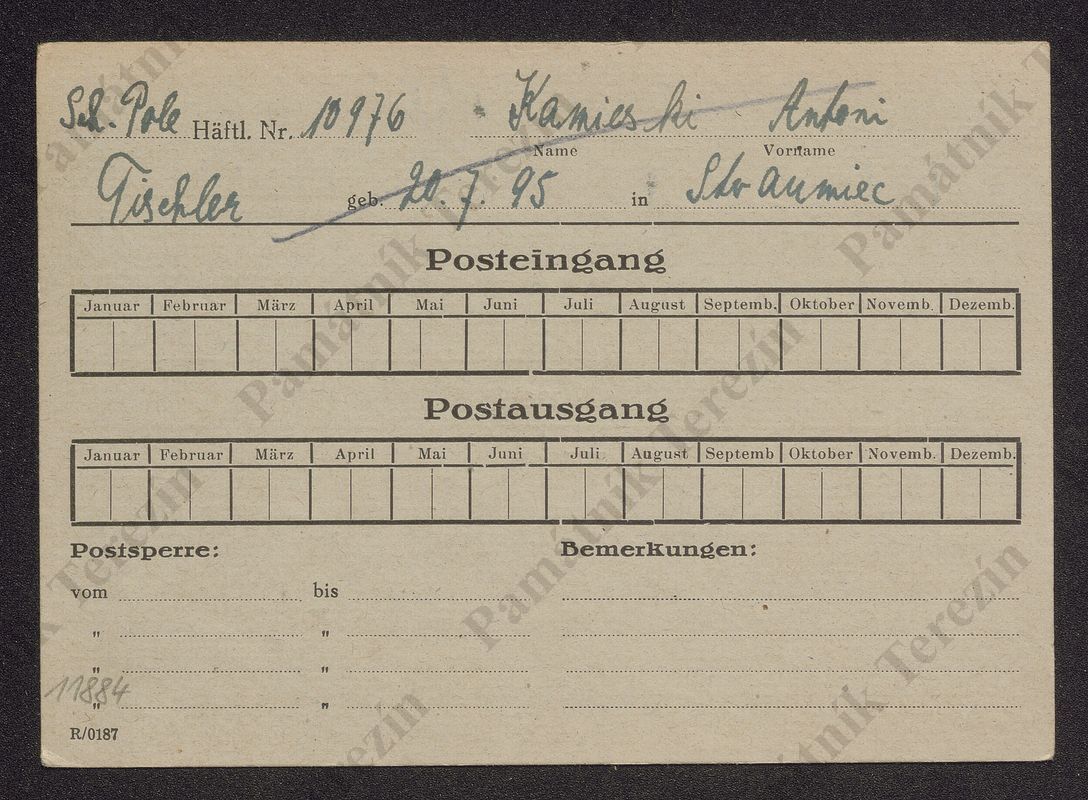 Sch. Pole Häftl. Nr. 10976 Kamieski Antoni
Name Vorname
Tischler geb. 20.7.95 in Straumiec
Posteingang
Januar Februar März April Mai Juni Juli August Septemb. Oktober Novemb. Dezemb.
Postausgang
Januar Februar März April Mai Juni Juli August Septemb Oktober Novemb. Dezemb.
Postsperre: Bemerkungen:
vom bis
" "
" "
11884
" "
R/0187
Památník Terezín